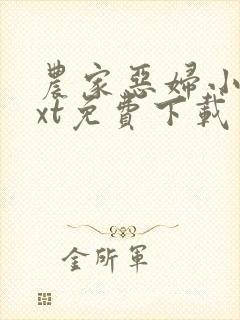 農家惡婦小
xt免費下載
金所軍